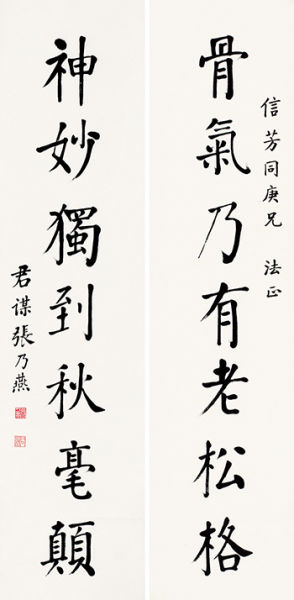 信芳同庚兄 法正
骨氣乃有老松格
神妙獨到秋毫顛
君谋張乃燕